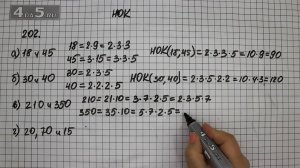 4A5.RU
НОК
202.
а) 18 и 45 18=2·9=2·3·3 НОК(18,45)=2·3·3·5=10·9=90
45=3·15=3·3·5
б) 30 и 40 30=2·3·5 НОК(30,40)=2·3·5·2·2=10·4·3=120
40=2·2·2·5
в) 210 и 350 210=21·10=3·7·2·5=2·3·5·7
350=35·10=5·7·2·5=
г) 20, 70 и 15